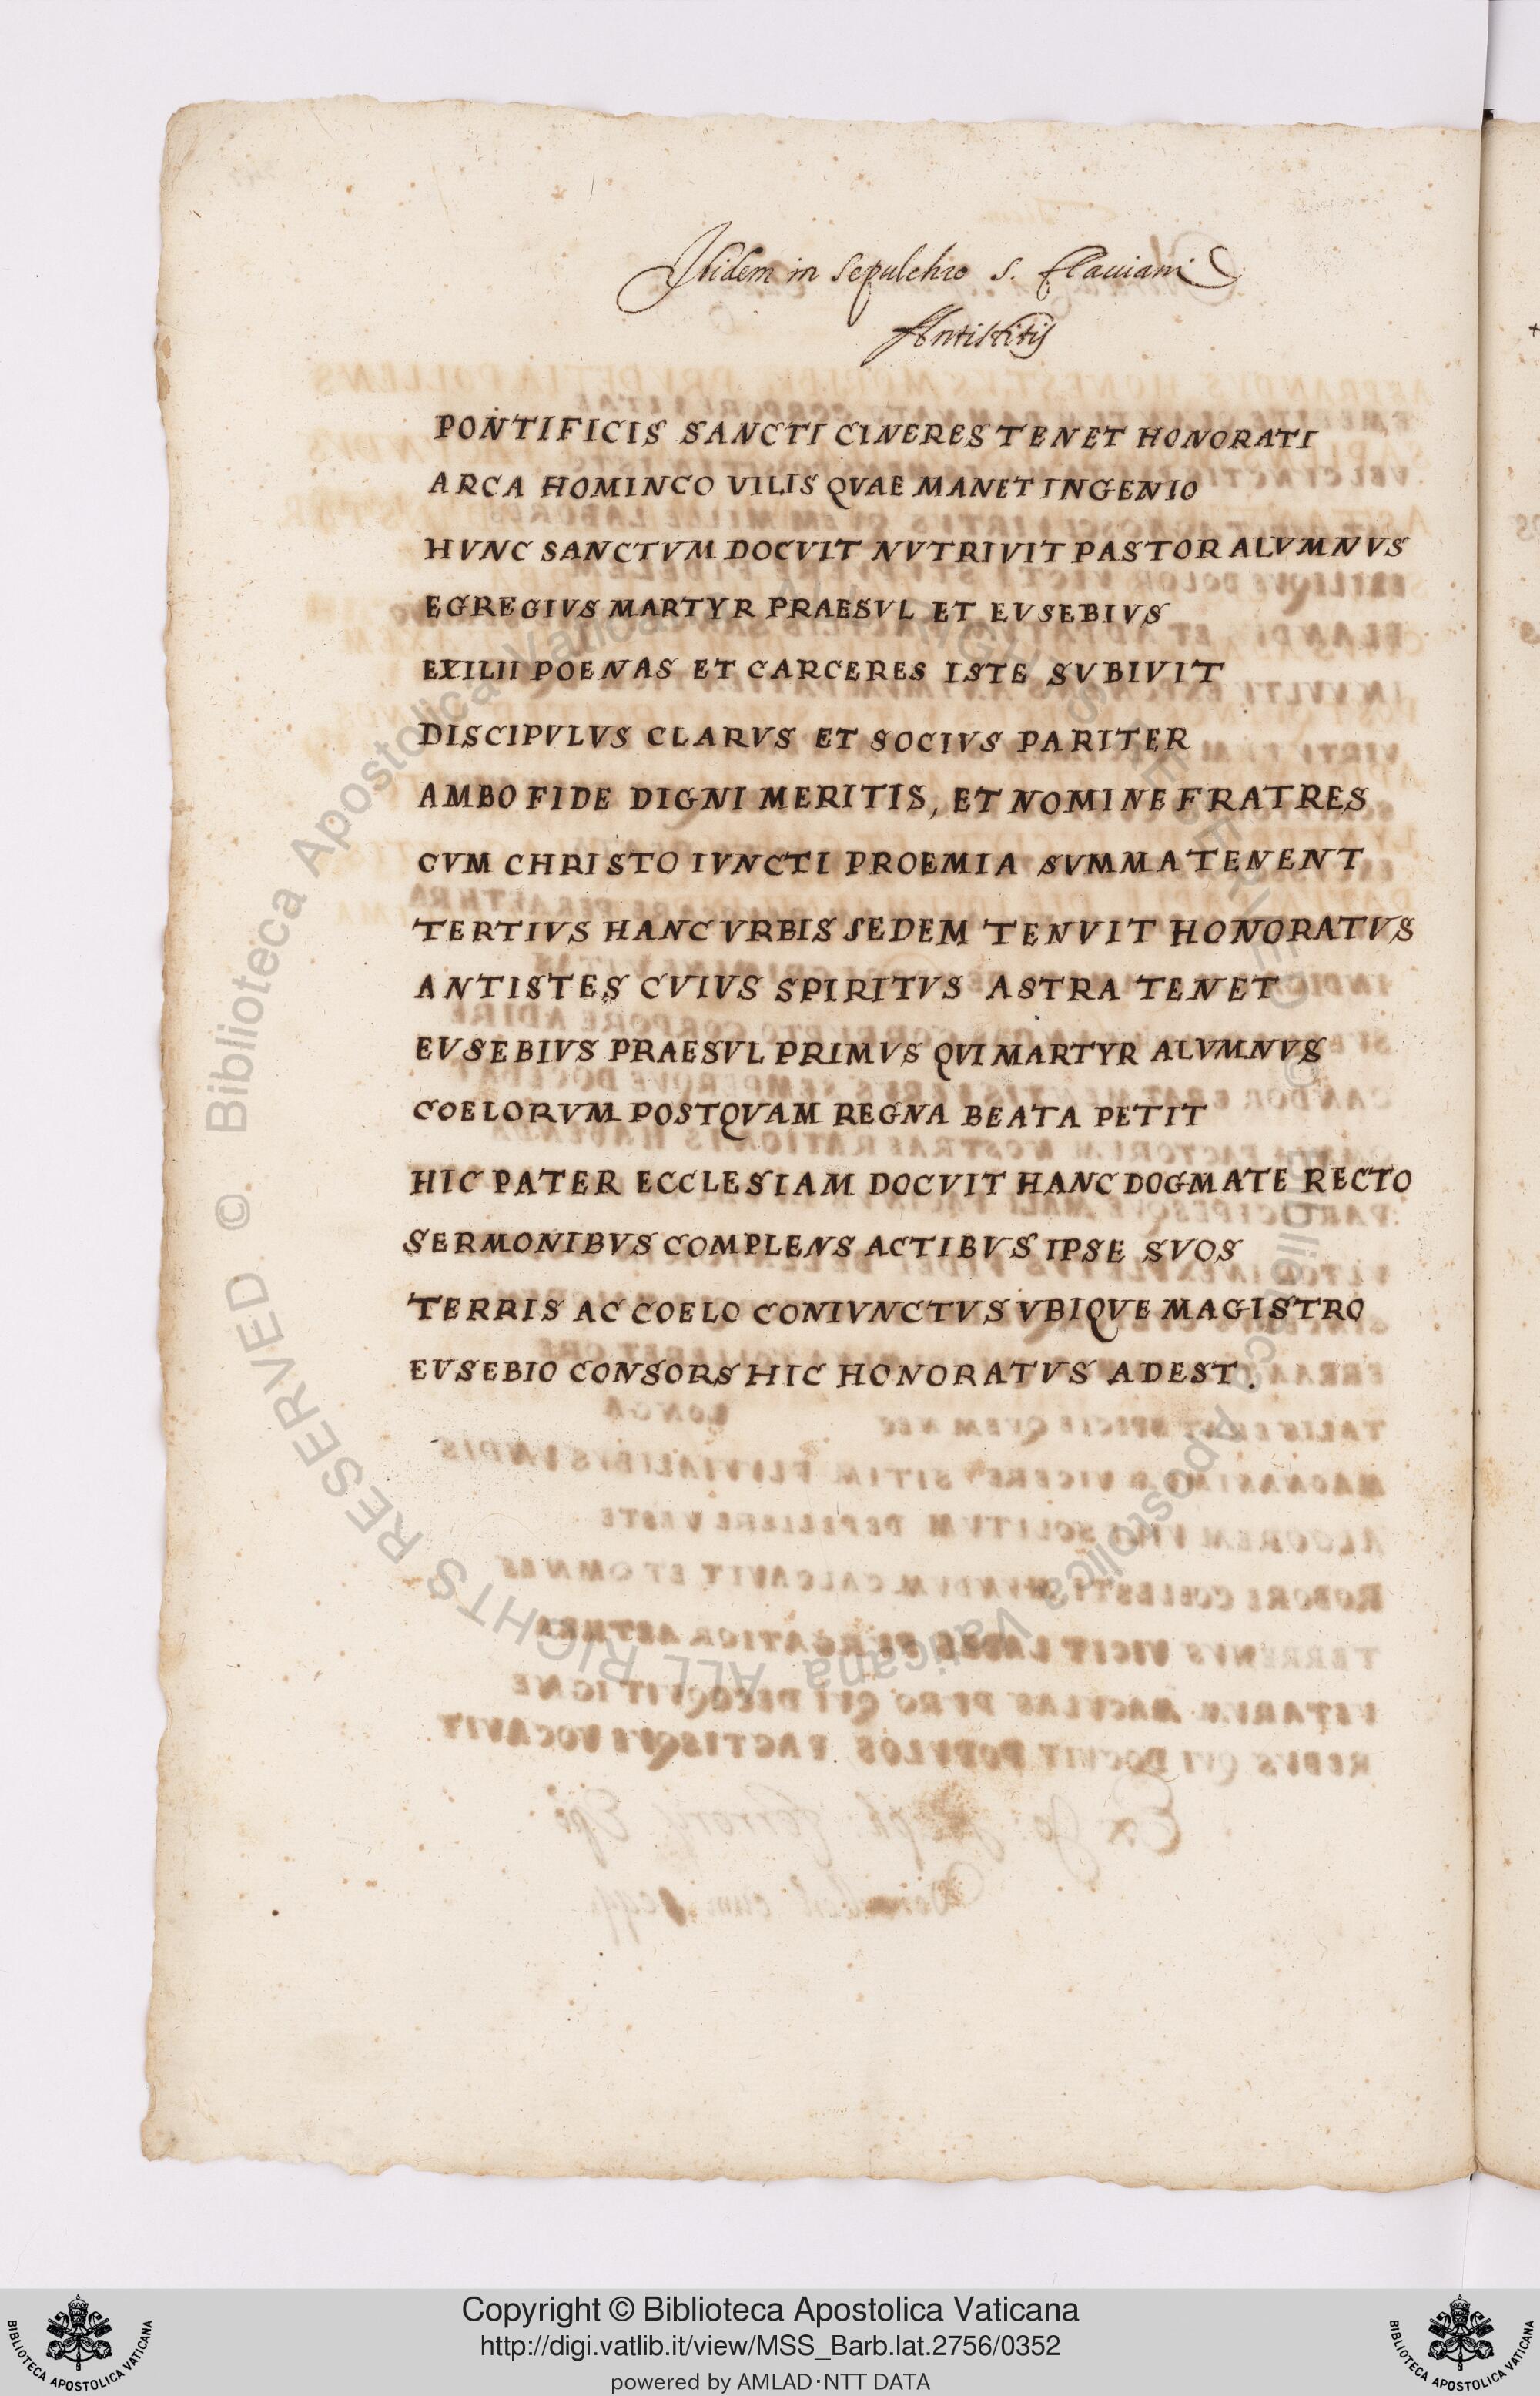 Itidem in sepulchro S. Flauiani
Antistitis
PONTIFICIS SANCTI CINERES TENET HONORATI
ARCA HOMINCO VILIS QVAE MANET INGENIO
HVNC SANCTVM DOCVIT NVTRIVIT PASTOR ALVMNVS
EGREGIVS MARTYR PRAESVL ET EVSEBIVS
EXILII POENAS ET CARCERES ISTE SVBIVIT
DISCIPVLVS CLARVS ET SOCIVS PARITER
AMBO FIDE DIGNI MERITIS, ET NOMINE FRATRES
CVM CHRISTO IVNCTI PROEMIA SVMMA TENENT
TERTIVS HANC VRBIS SEDEM TENVIT HONORATVS
ANTISTES CVIVS SPIRITVS ASTRA TENET
EVSEBIVS PRAESVL PRIMVS QVI MARTYR ALVMNVS
COELORVM POSTQVAM REGNA BEATA PETIT
HIC PATER ECCLESIAM DOCVIT HANC DOGMATE RECTO
SERMONIBVS COMPLENS ACTIBVS IPSE SVOS
TERRIS AC COELO CONIVNCTVS VBIQVE MAGISTRO
EVSEBIO CONSORS HIC HONORATVS ADEST.
© Biblioteca Apostolica Vaticana ALL RIGHTS RESERVED
© Biblioteca Apostolica Vaticana ALL RIGHTS RESERVED
BIBLIOTECA APOSTOLICA VATICANA
Copyright © Biblioteca Apostolica Vaticana
http://digi.vatlib.it/view/MSS_Barb.lat.2756/0352
powered by AMLAD·NTT DATA
BIBLIOTECA APOSTOLICA VATICANA